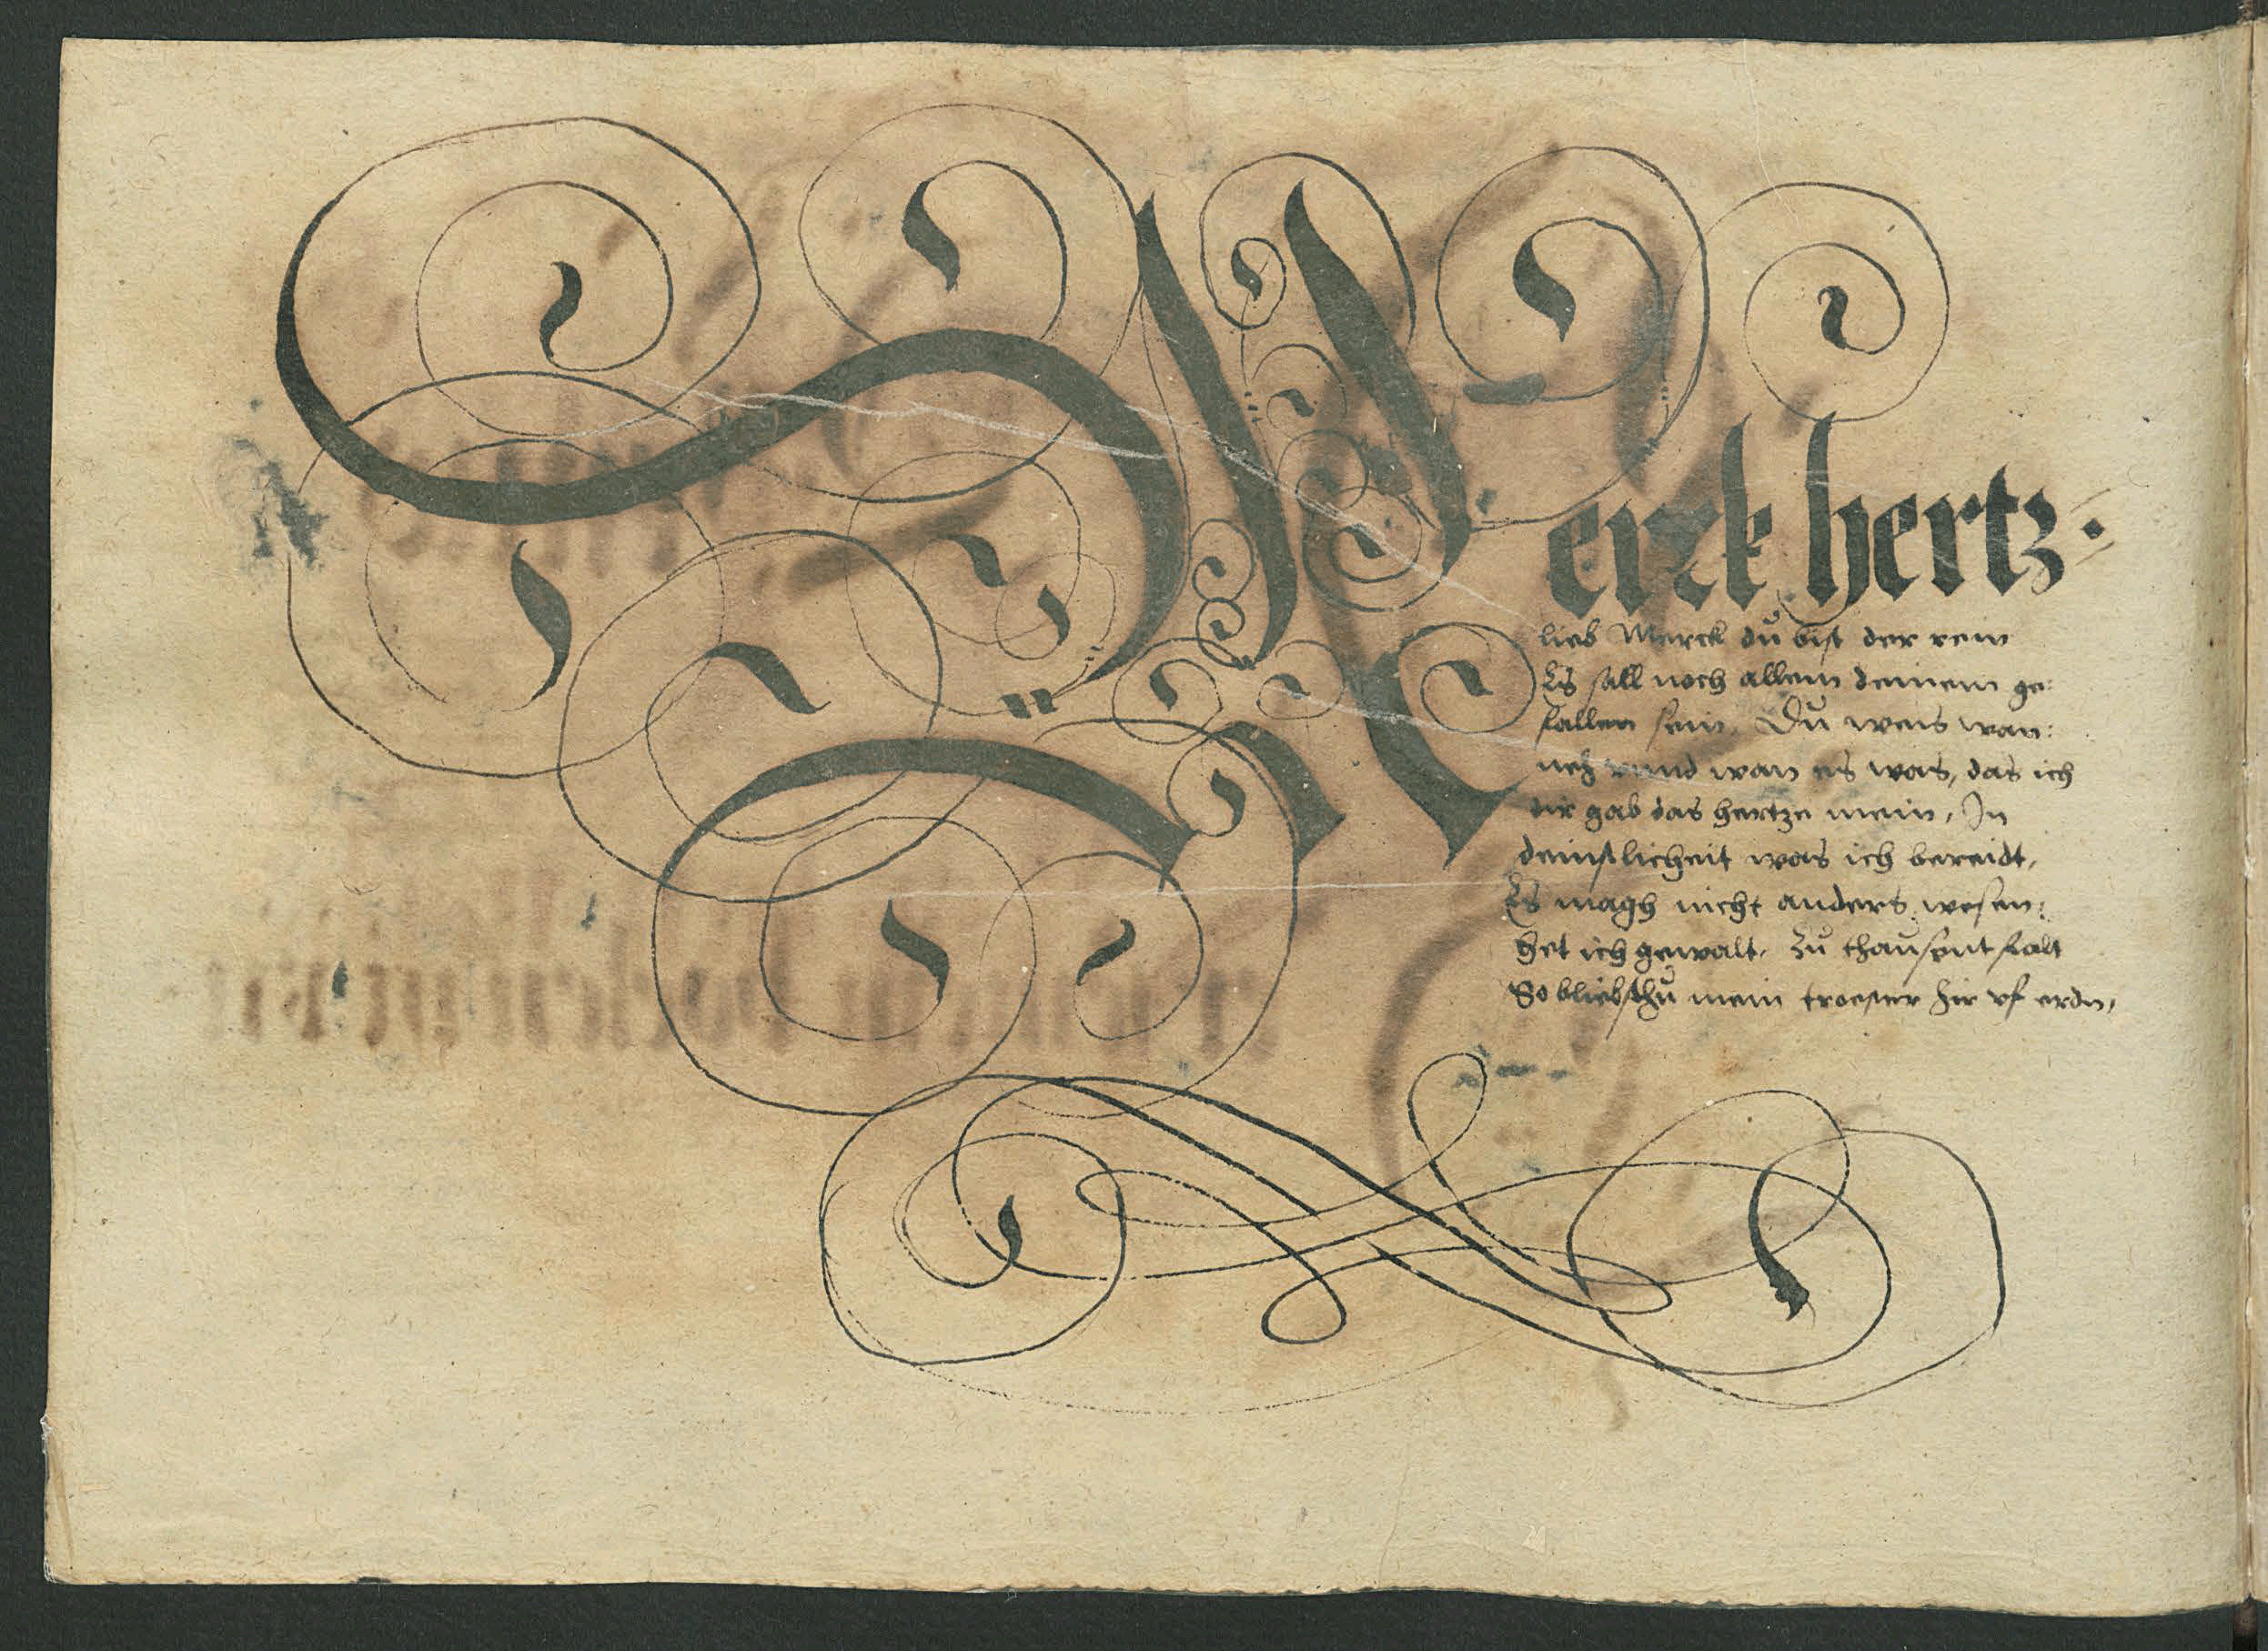 Merck hertz.
lieb Merck dŭ bist der rein
Es sall noch allem deinem ge:
fallen sein. Dŭ weis wan:
neh vnnd wan es was, das ich
dir gab das hertze mein, In
deinstlicheit was ich bereidt,
Es magh nicht anders wesen:
het ich gewalt, zŭ thaŭsent falt
So bliebsthŭ mein troester hir vf erdn,